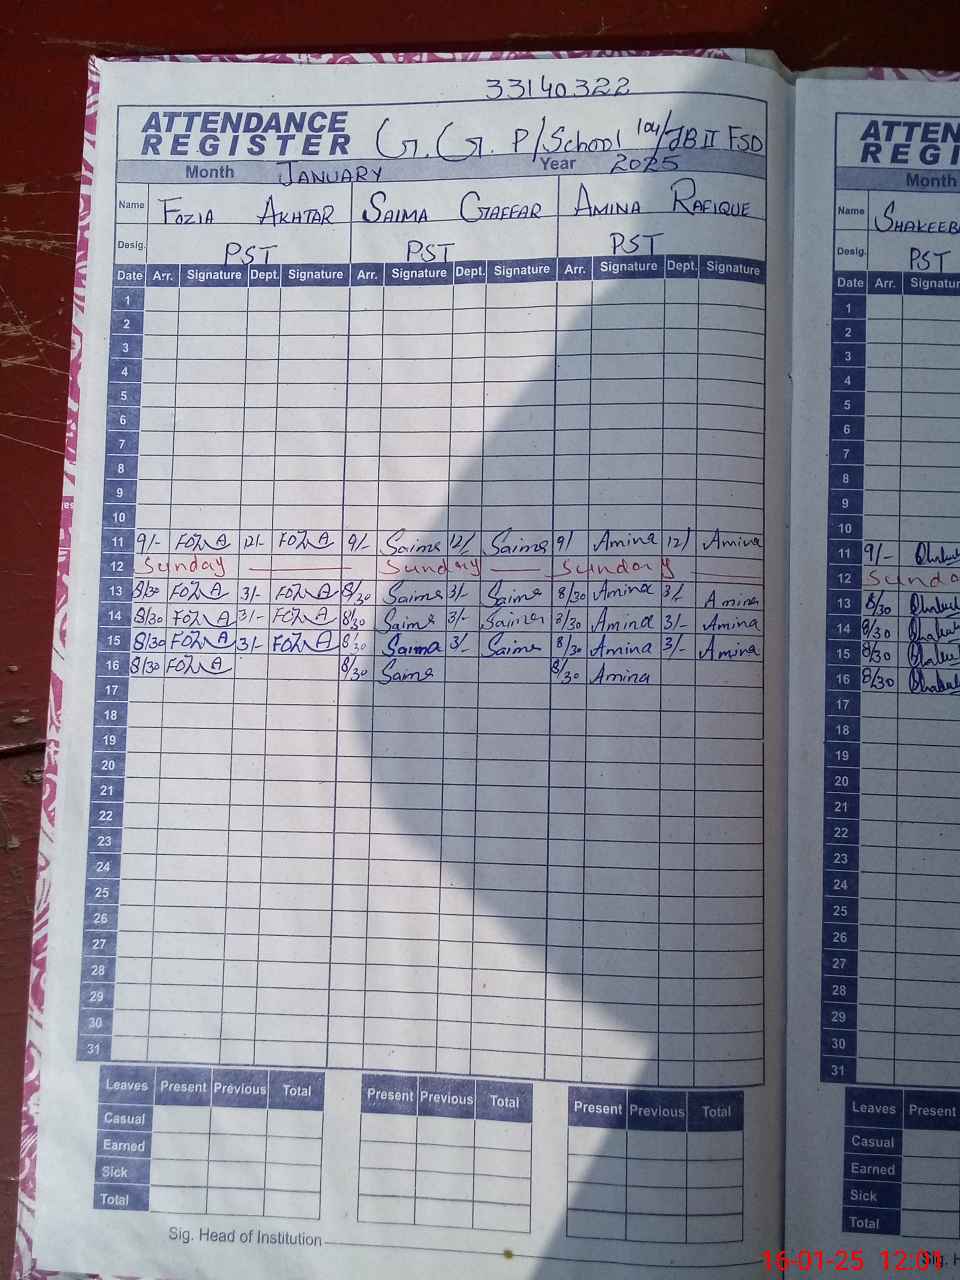 33140322
ATTENDANCE REGISTER G.G. P/School 104/JB II FSD
Month JANUARY Year 2025
Name FOZIA AKHTAR SAIMA GAFFAR AMINA RAFIQUE
Desig. PST PST PST
Date Arr. Signature Dept. Signature Arr. Signature Dept. Signature Arr. Signature Dept. Signature
1
2
3
4
5
6
7
8
9
10
11 9/- FOZIA 12/- FOZIA 9/- Saima 12/ Saima 9/ Amina 12/ Amina
12 Sunday Sunday Sunday
13 8/30 FOZIA 3/- FOZIA 8/30 Saima 3/- Saima 8/30 Amina 3/- Amina
14 8/30 FOZIA 3/- FOZIA 8/30 Saima 3/- Saima 8/30 Amina 3/- Amina
15 8/30 FOZIA 3/- FOZIA 8/30 Saima 3/- Saima 8/30 Amina 3/- Amina
16 8/30 FOZIA 8/30 Saima 8/30 Amina
17
18
19
20
21
22
23
24
25
26
27
28
29
30
31
Leaves Present Previous Total Present Previous Total Present Previous Total
Casual
Earned
Sick
Total
Sig. Head of Institution
ATTEN
REGI
Month
Name SHAKEEB
Desig. PST
Date Arr. Signatu
1
2
3
4
5
6
7
8
9
10
11 9/-
12 Sunda
13 8/30
14 8/30
15 8/30
16 8/30
17
18
19
20
21
22
23
24
25
26
27
28
29
30
31
Leaves Present
Casual
Earned
Sick
Total
Sig. H
16-01-25 12:01